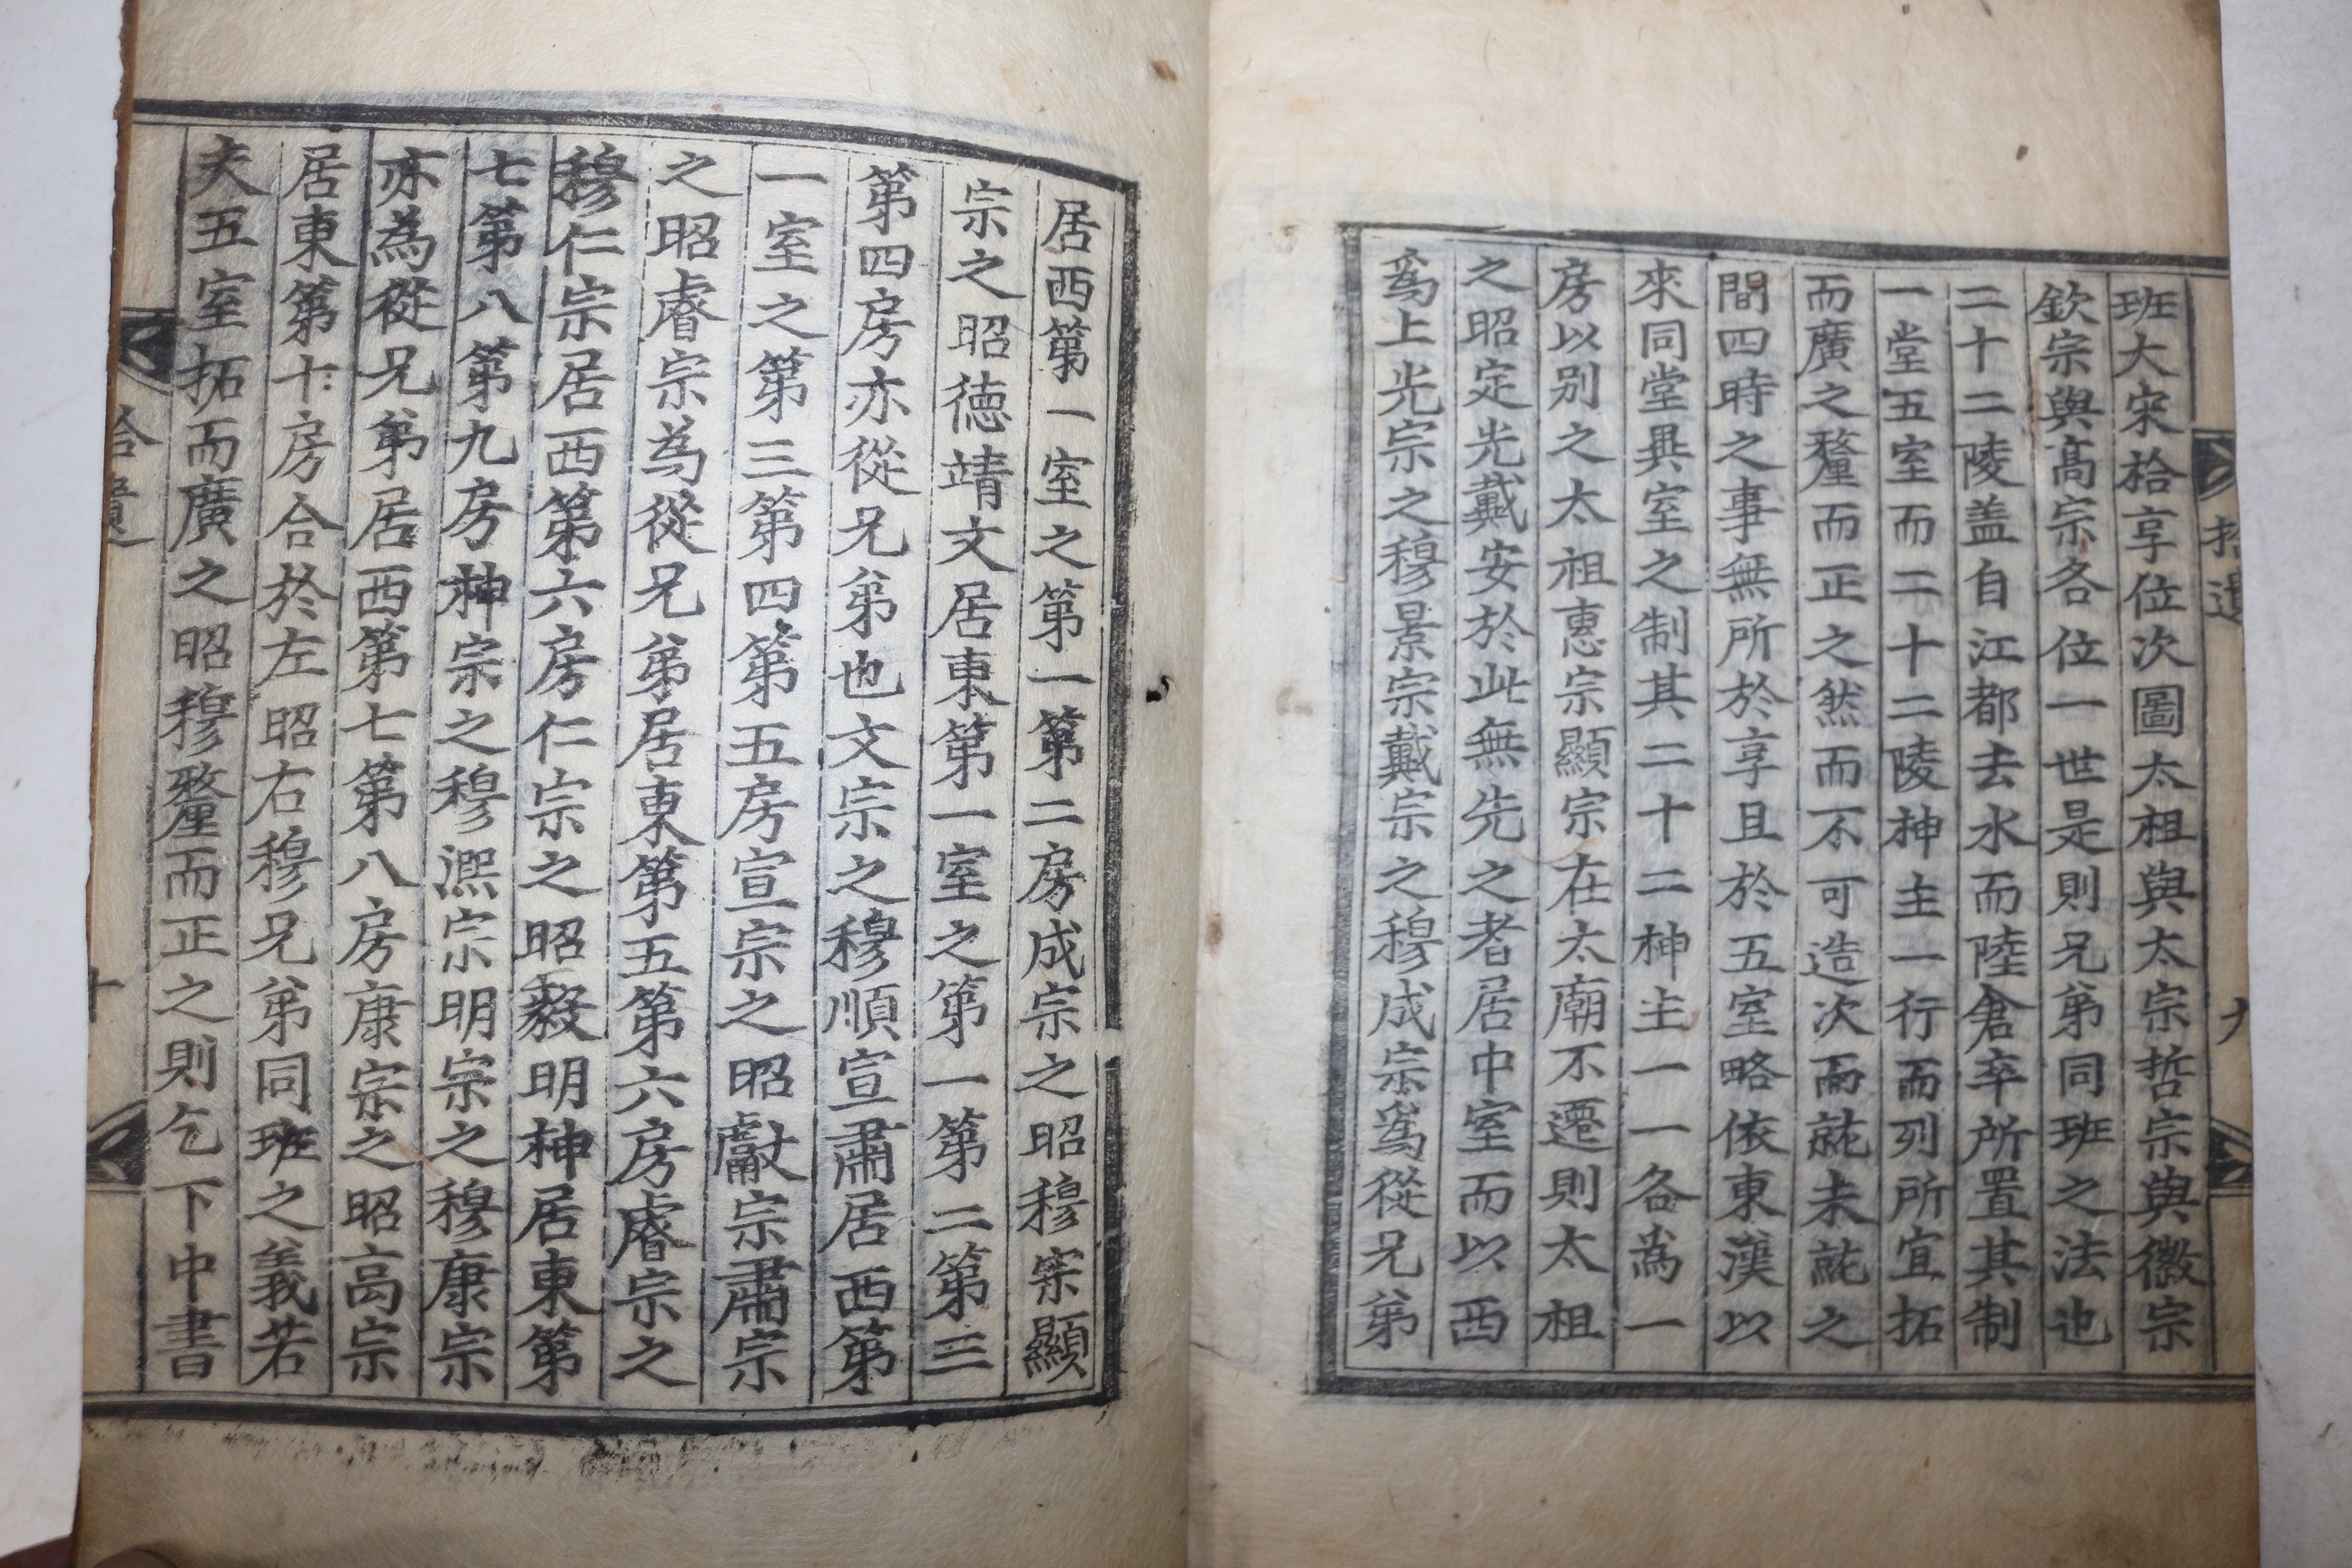 班大宋祫享位次圖太祖與太宗哲宗與徽宗
欽宗與高宗各位一世是則兄弟同班之法也
二十二陵盖自江都去水而陸倉卒所置其制
一堂五室而二十二陵神主一行而列所宜拓
而廣之釐而正之然而不可造次而就未就之
間四時之事無所於享且於五室略依東漢以
來同堂異室之制其二十二神主一一各爲一
房以别之太祖惠宗顯宗在太廟不遷則太祖
之昭定光戴安於此無先之者居中室而以西
爲上光宗之穆景宗戴宗之穆成宗爲從兄弟
居西第一室之第一第二房成宗之昭穆宗顯
宗之昭德靖文居東第一室之第一第二第三
第四房亦從兄弟也文宗之穆順宣肅居西第
一室之第三第四第五房宣宗之昭獻宗肅宗
之昭睿宗為從兄弟居東第五第六房睿宗之
穆仁宗居西第六房仁宗之昭毅明神居東第
七第八第九房神宗之穆熙宗明宗之穆康宗
亦為從兄弟居西第七第八房康宗之昭高宗
居東第十房合於左昭右穆兄弟同班之義若
夫五室拓而廣之昭穆釐而正之則乞下中書
拾遺
九
拾遺
十